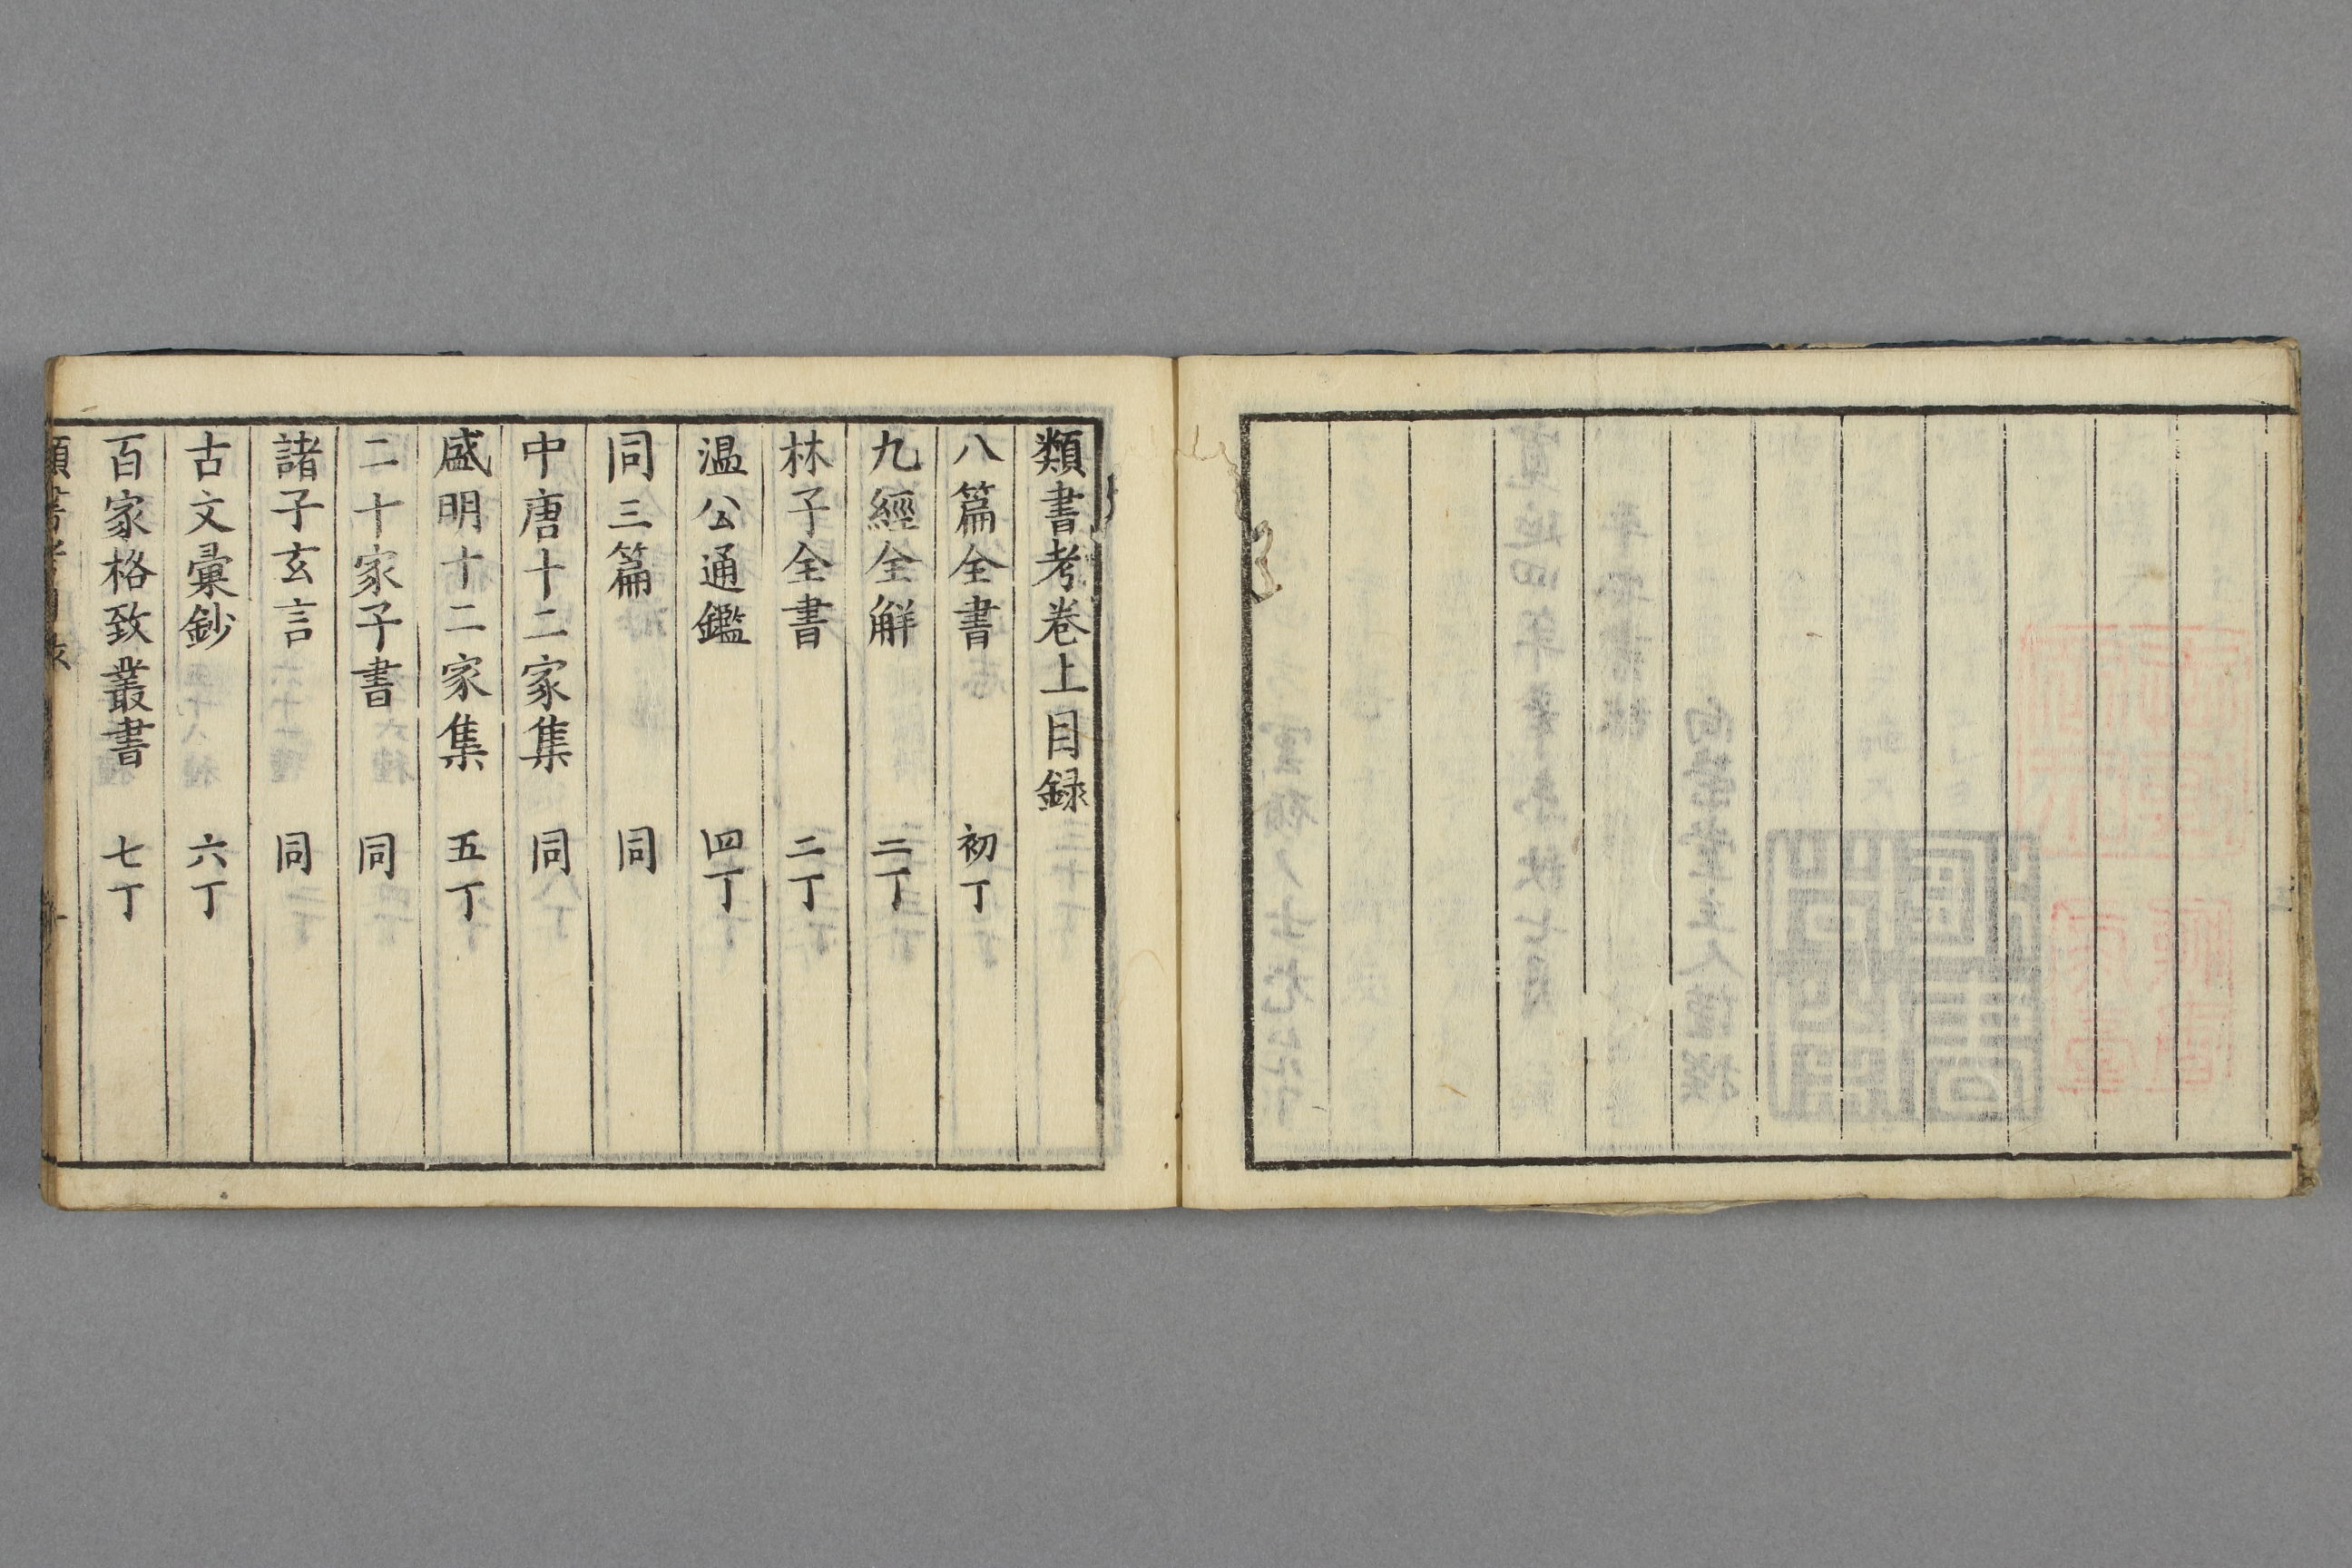 類書考卷上目録
八篇全書 初丁
九經全觧 二丁
林子全書 二丁
温公通鑑 四丁
同三篇 同
中唐十二家集 同
盛明十二家集 五丁
二十家子書 同
諸子玄言 同
古文彙鈔 六丁
百家格致叢書 七丁